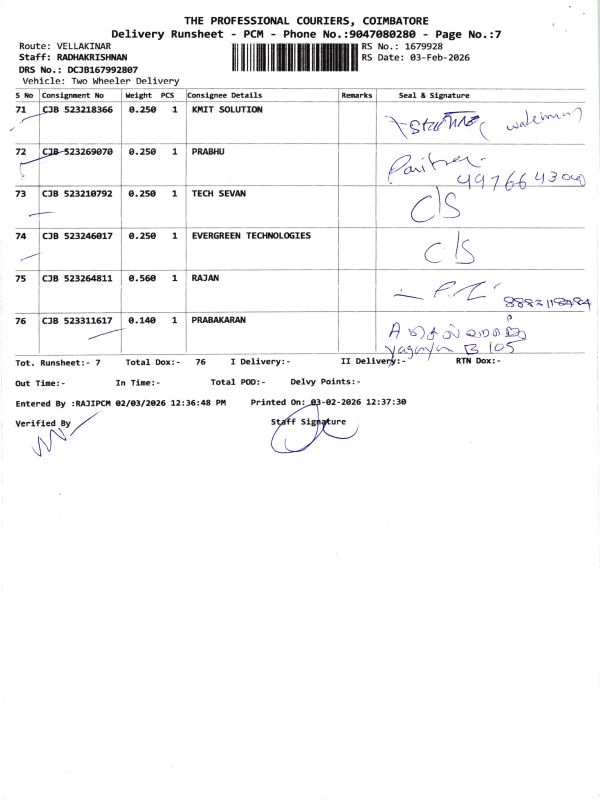 THE PROFESSIONAL COURIERS, COIMBATORE
Delivery Runsheet - PCM - Phone No.:9047080280 - Page No.:7
Route: VELLAKINAR RS No.: 1679928
Staff: RADHAKRISHNAN RS Date: 03-Feb-2026
DRS No.: DCJB167992807
Vehicle: Two Wheeler Delivery
S No Consignment No Weight PCS Consignee Details Remarks Seal & Signature
71 CJB 523218366 0.250 1 KMIT SOLUTION
72 CJB 523269070 0.250 1 PRABHU
73 CJB 523210792 0.250 1 TECH SEVAN C/S
74 CJB 523246017 0.250 1 EVERGREEN TECHNOLOGIES C/S
75 CJB 523264811 0.560 1 RAJAN
76 CJB 523311617 0.140 1 PRABAKARAN
B 105
Tot. Runsheet:- 7 Total Dox:- 76 I Delivery:- II Delivery:- RTN Dox:-
Out Time:- In Time:- Total POD:- Delvy Points:-
Entered By :RAJIPCM 02/03/2026 12:36:48 PM Printed On: 03-02-2026 12:37:30
Verified By Staff Signature